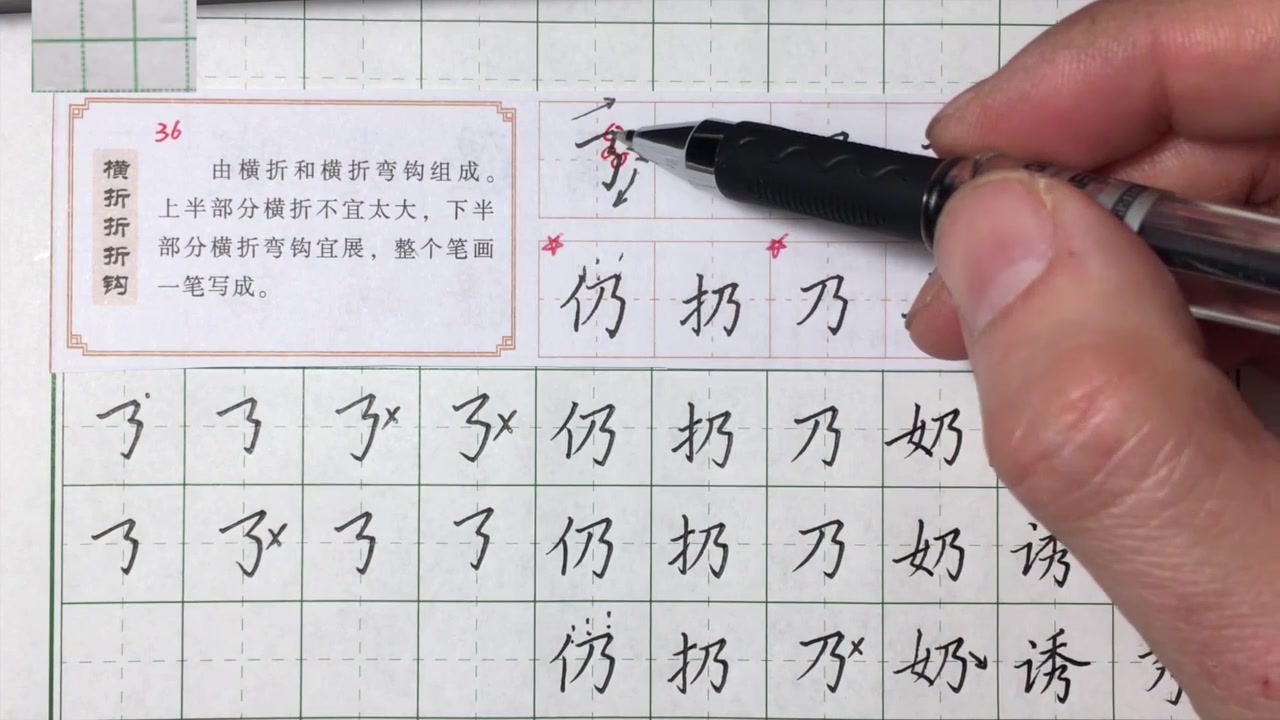 36
横折折折钩
由横折和横折弯钩组成。
上半部分横折不宜太大，下半
部分横折弯钩宜展，整个笔画
一笔写成。
仍 扔 乃
㇡ ㇡ ㇡× ㇡× 仍 扔 乃 奶
㇡ ㇡× ㇡ ㇡ 仍 扔 乃 奶 诱
仍 扔 乃× 奶 诱